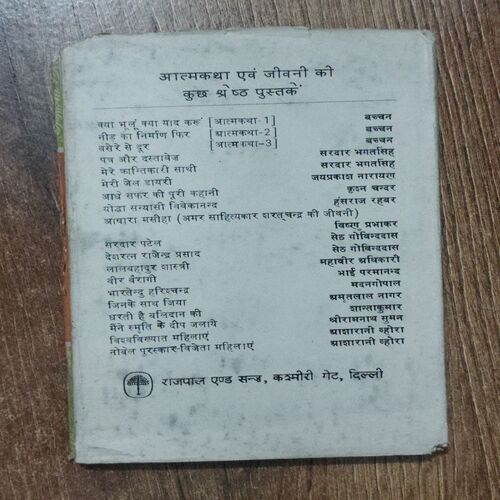 आत्मकथा एवं जीवनी की
कुछ श्रेष्ठ पुस्तकें
क्या भूलूं क्या याद करूं [आत्मकथा-1] बच्चन
नीड़ का निर्माण फिर [आत्मकथा-2] बच्चन
बसेरे से दूर [आत्मकथा-3] बच्चन
पत्र और दस्तावेज़ सरदार भगतसिंह
मेरे क्रान्तिकारी साथी सरदार भगतसिंह
मेरी जेल डायरी जयप्रकाश नारायण
आधे सफर की पूरी कहानी कृश्न चन्दर
योद्धा सन्यासी विवेकानन्द हंसराज रहबर
आवारा मसीहा (अमर साहित्यकार शरत्चन्द्र की जीवनी)
विष्णु प्रभाकर
सरदार पटेल सेठ गोविन्ददास
देशरत्न राजेन्द्र प्रसाद सेठ गोविन्ददास
लालबहादुर शास्त्री महावीर अधिकारी
वीर बैरागी भाई परमानन्द
भारतेन्दु हरिश्चन्द्र मदनगोपाल
जिनके साथ जिया अमृतलाल नागर
धरती है बलिदान की शान्ताकुमार
मैंने स्मृति के दीप जलाये श्रीरामनाथ सुमन
विश्वविख्यात महिलाएं आशारानी व्होरा
नोबेल पुरस्कार-विजेता महिलाएं आशारानी व्होरा
राजपाल एण्ड सन्ज़, कश्मीरी गेट, दिल्ली